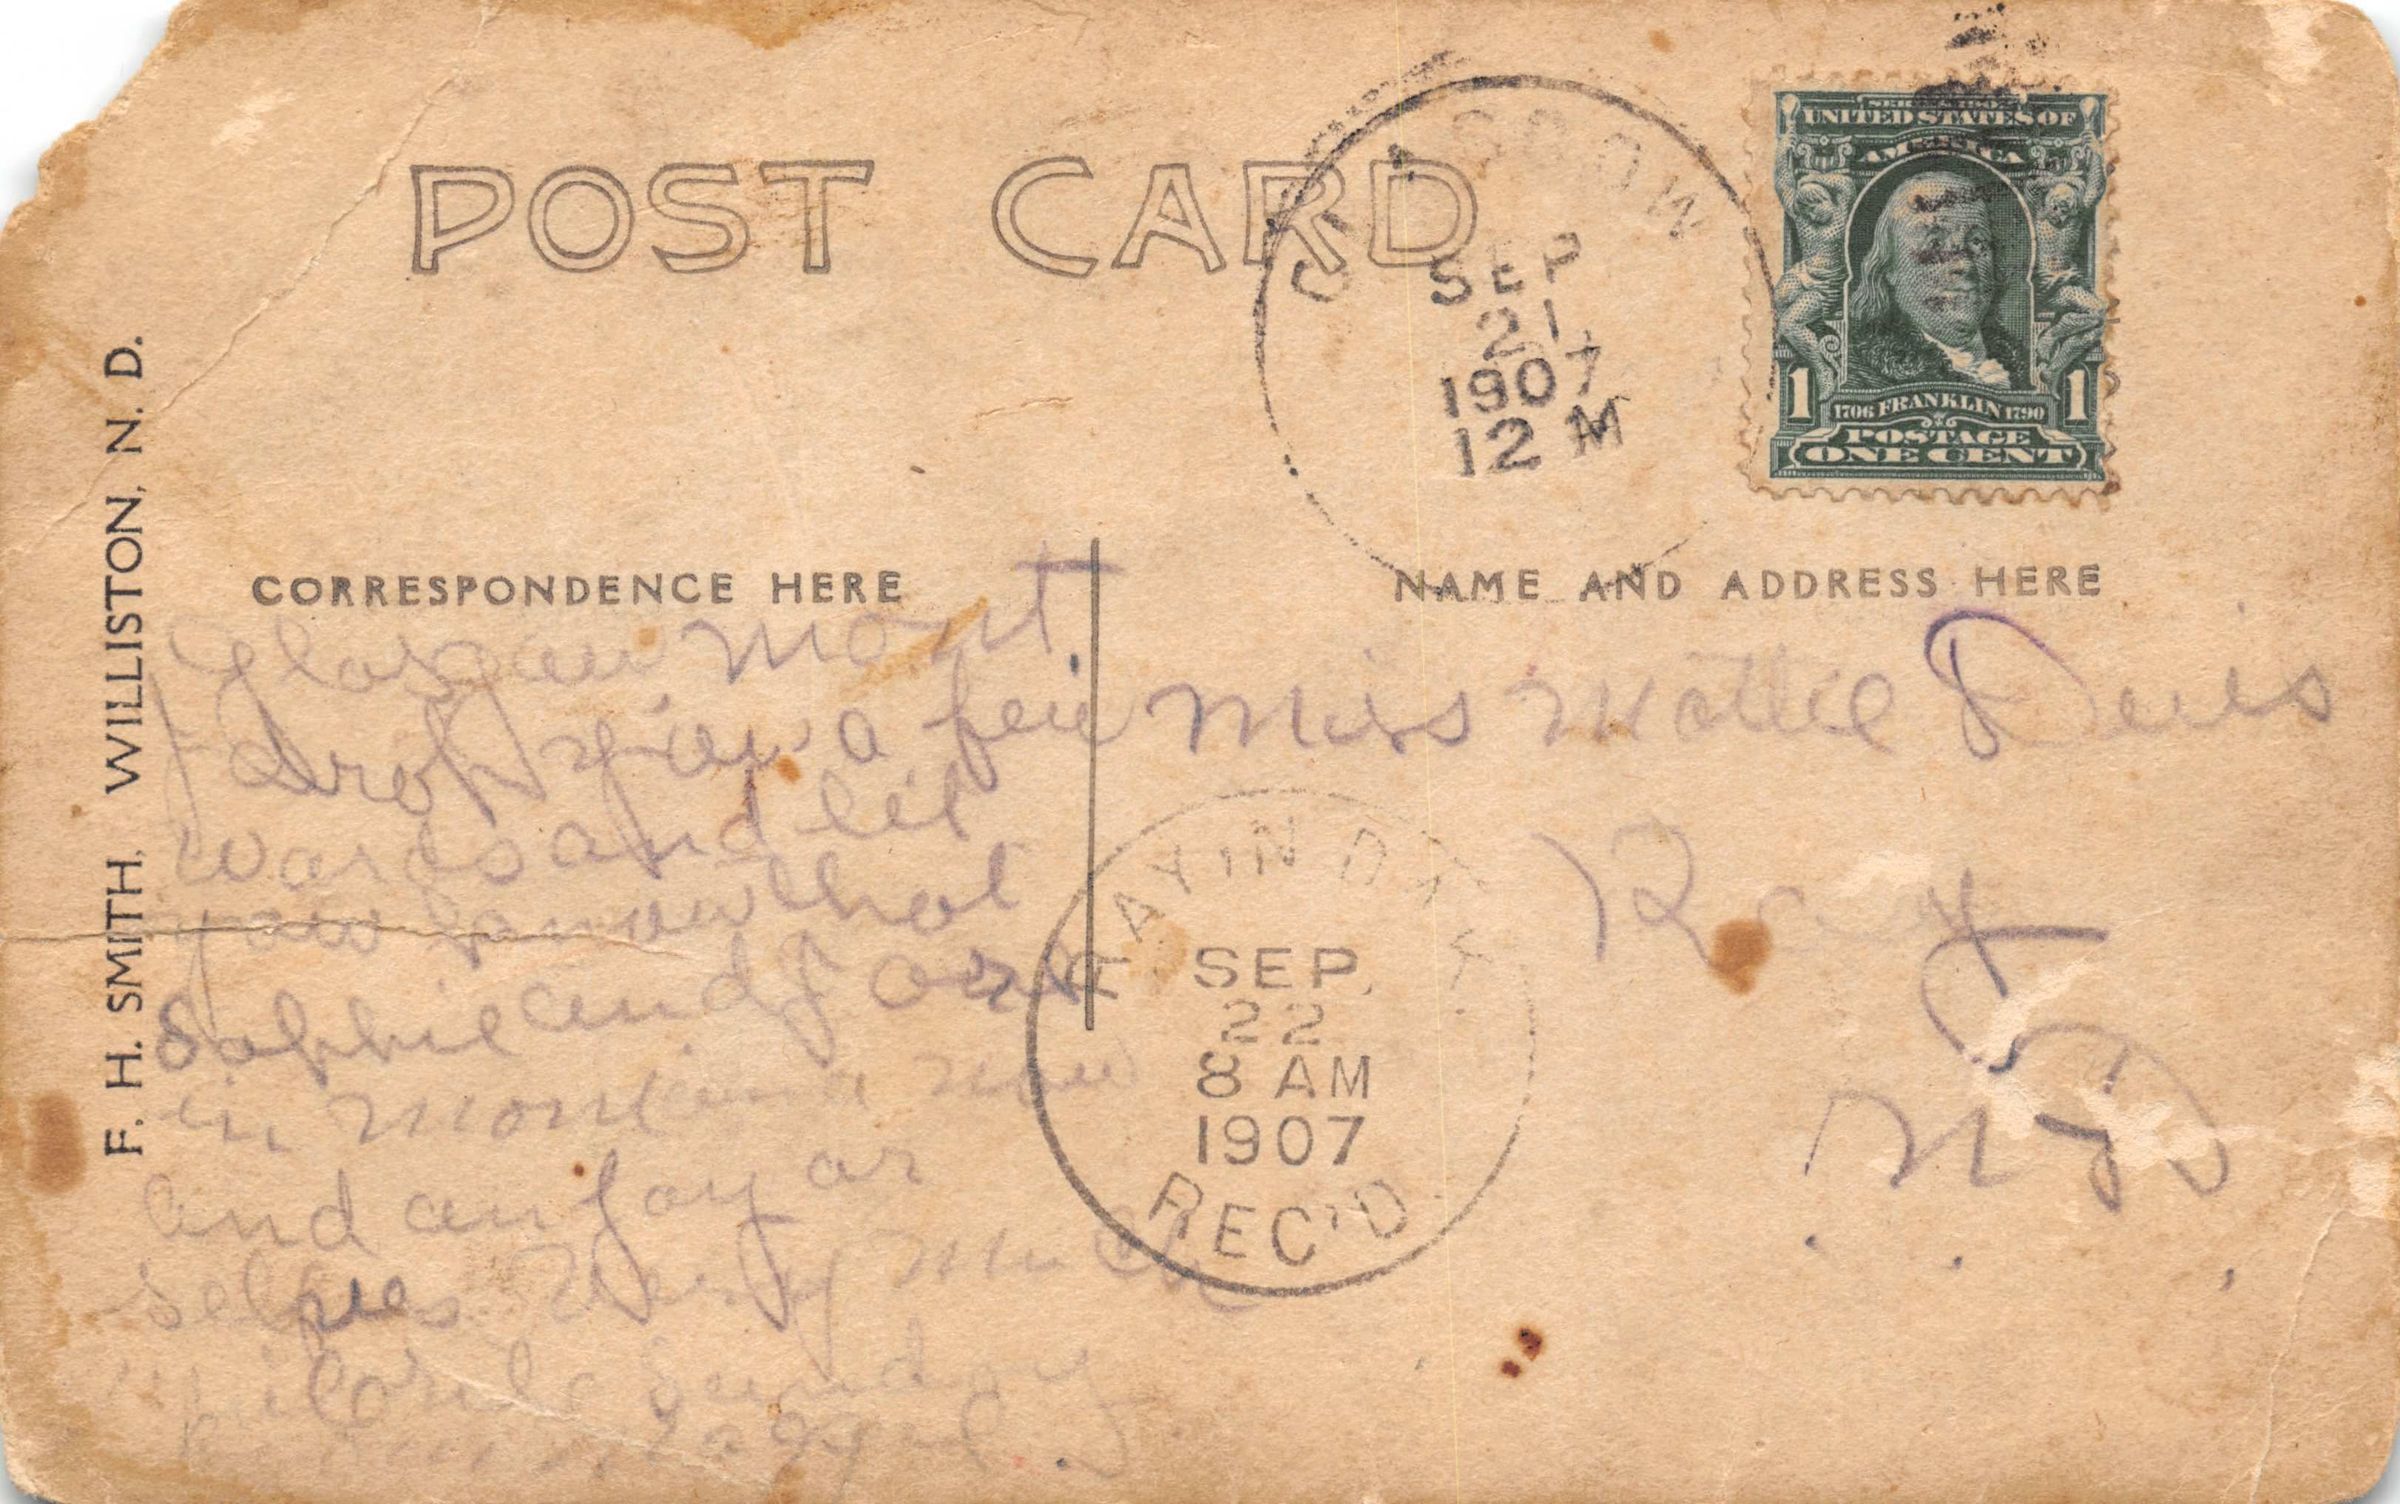 POST CARD
GLASGOW
SEP
21
1907
12 M
SERIES 1902
UNITED STATES OF
AMERICA
1 1706 FRANKLIN 1790 1
POSTAGE
ONE CENT
F. H. SMITH, WILLISTON, N. D.
CORRESPONDENCE HERE
NAME AND ADDRESS HERE
Glasgow Mont.
I drop you a few
words and let
you know that
Sophie and I are
in Montana now
and an joy ar
selfies very much
Sunday
Miss Mattie
Ray
N. D.
RAY, N. DAK.
SEP.
22
8 AM
1907
REC'D.